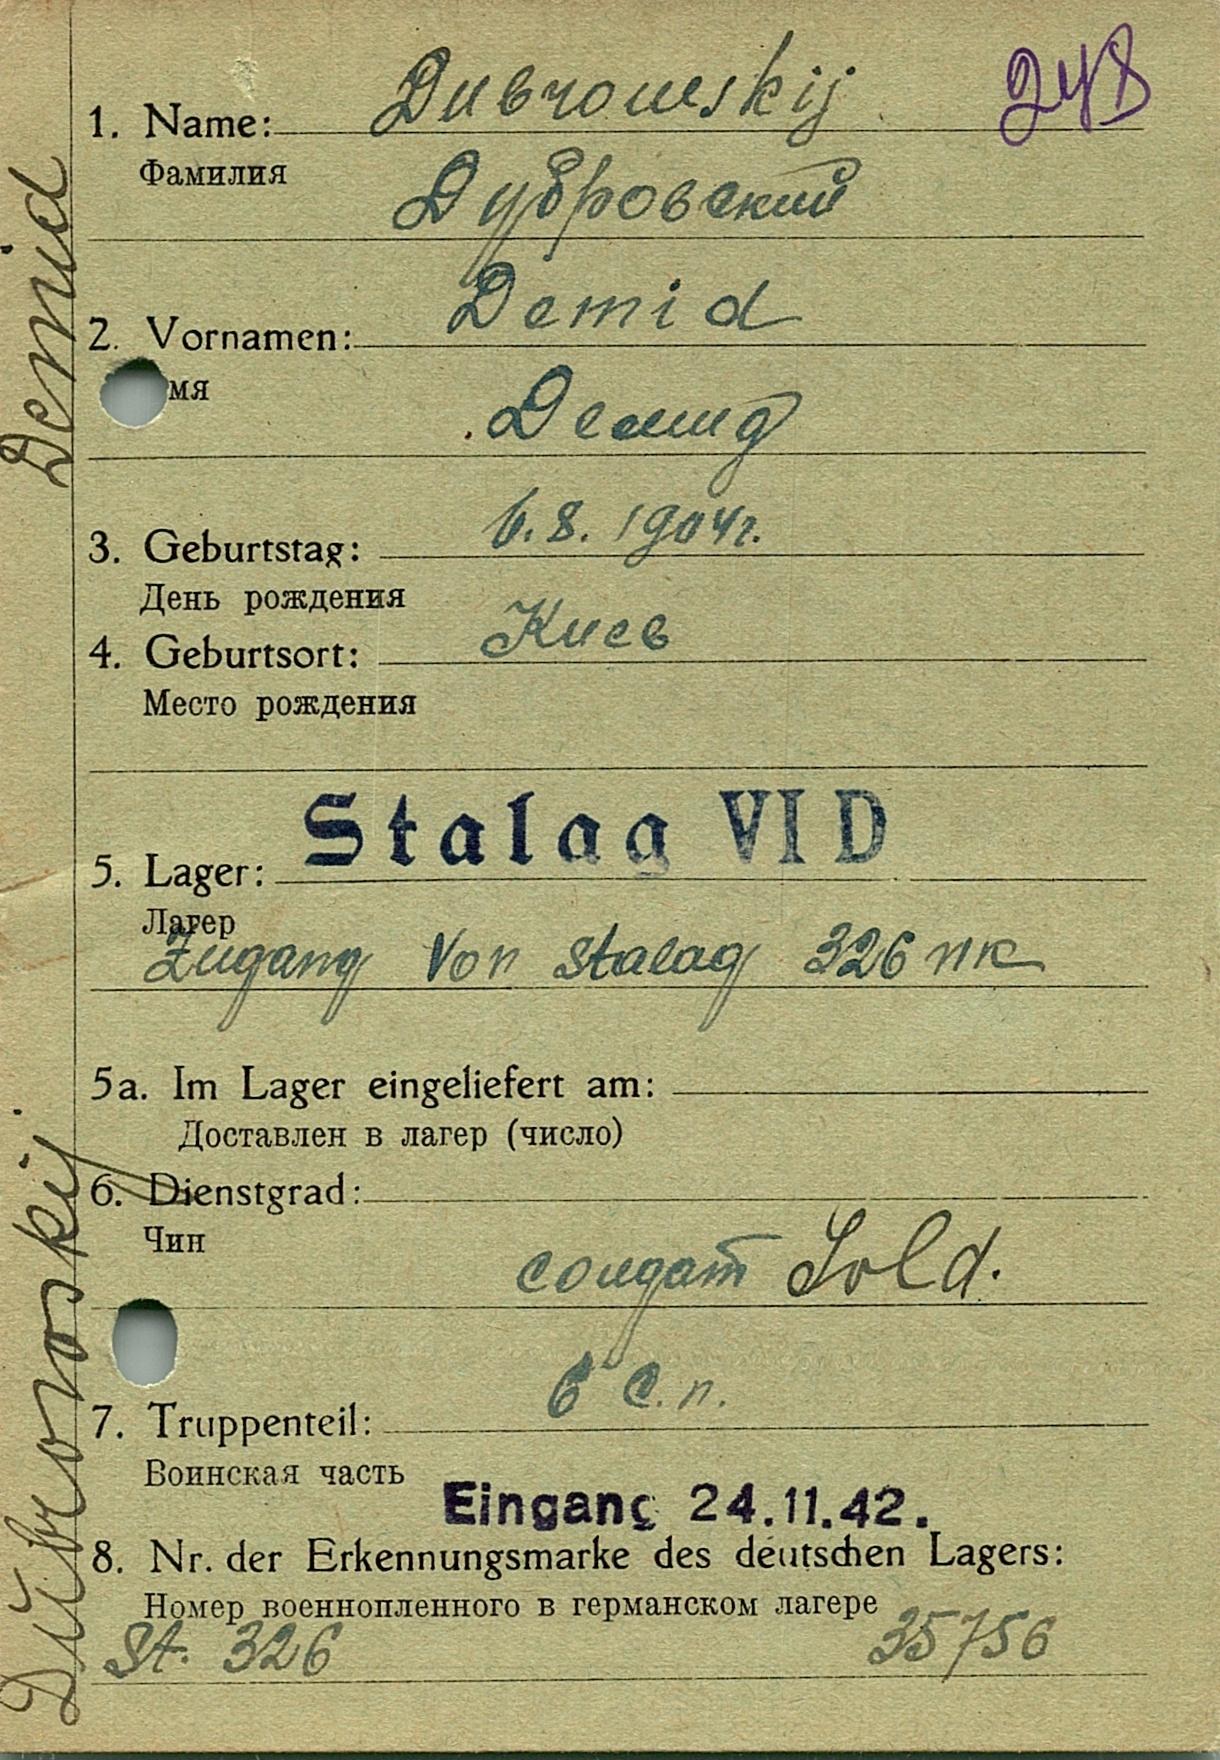 248
1. Name: Dubrowskij
Фамилия
Дубровский
2. Vornamen: Demid
мя
Демид
3. Geburtstag: 6.8.1904г.
День рождения
4. Geburtsort: Киев
Место рождения
Stalag VI D
5. Lager:
Лагер
Zugang von Stalag 326 ПК
5a. Im Lager eingeliefert am:
Доставлен в лагер (число)
6. Dienstgrad:
Чин
солдат Sold.
6 с.п.
7. Truppenteil:
Воинская часть
Eingang 24.11.42.
8. Nr. der Erkennungsmarke des deutschen Lagers:
Номер военнопленного в германском лагере
St. 326 35756
Dŭbrovskij Demid